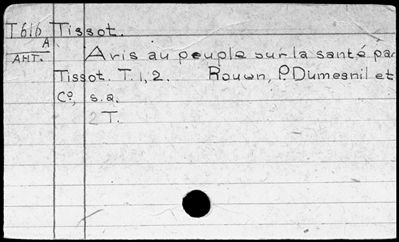 T616 Tissot.
A
ANT. Avis au peuple sur la santé pa
Tissot. T. 1, 2. Rouen, P. Dumesnil et
Co, s.a.
2 T.